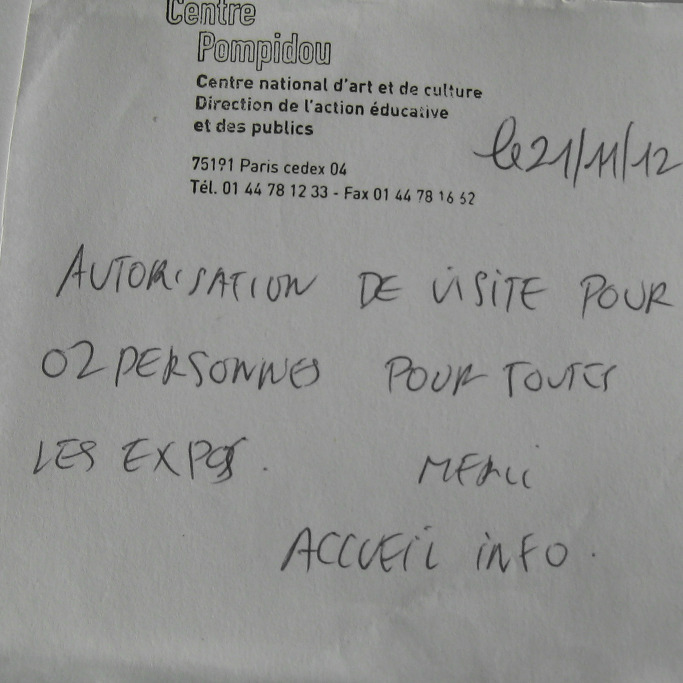 Centre
Pompidou
Centre national d'art et de culture
Direction de l'action éducative
et des publics
75191 Paris cedex 04
Tél. 01 44 78 12 33 - Fax 01 44 78 16 62
le 21/11/12
AUTORISATION DE VISITE POUR
02 PERSONNES POUR TOUTES
LES EXPOS.
MERCI
ACCUEIL INFO.